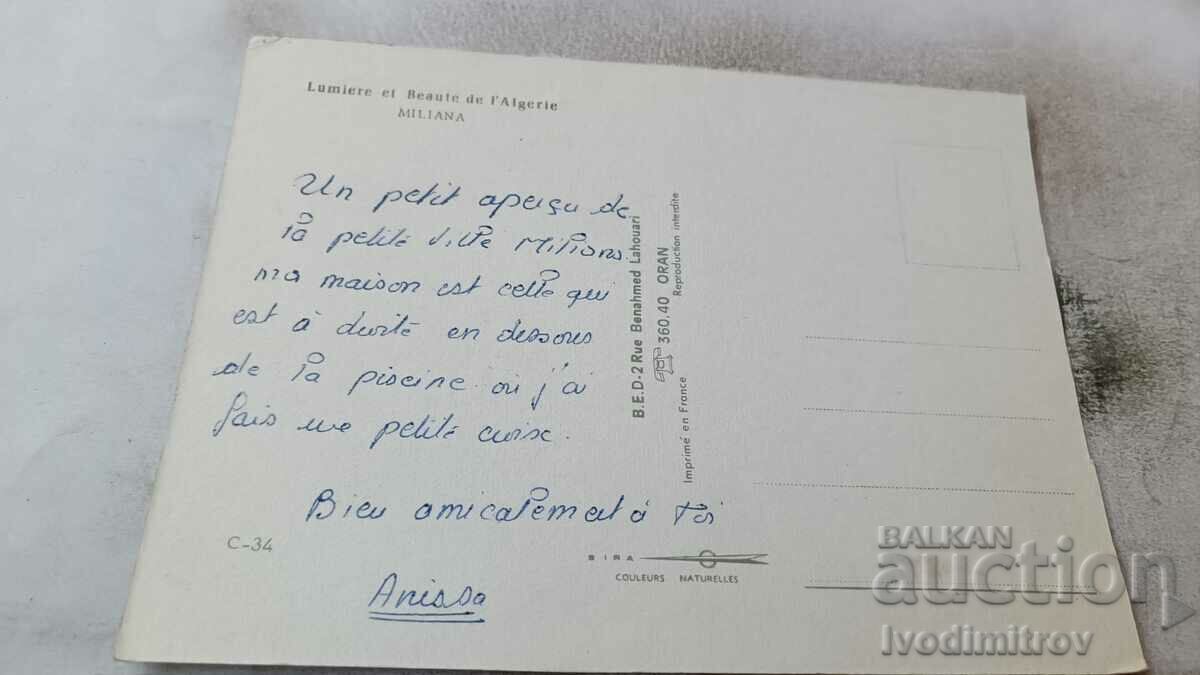 Lumiere et Beaute de l'Algerie
MILIANA
Un petit aperçu de
la petite ville Miliana.
ma maison est celle qui
est à droite en dessous
de la piscine où j'ai
fais une petite croix.
Bien amicalement à toi
Anissa
C-34
B.E.D-2 Rue Benahmed Lahouari
360.40 ORAN
Imprimé en France
Reproduction interdite
SIRA
COULEURS NATURELLES
BALKAN
auction
Ivodimitrov